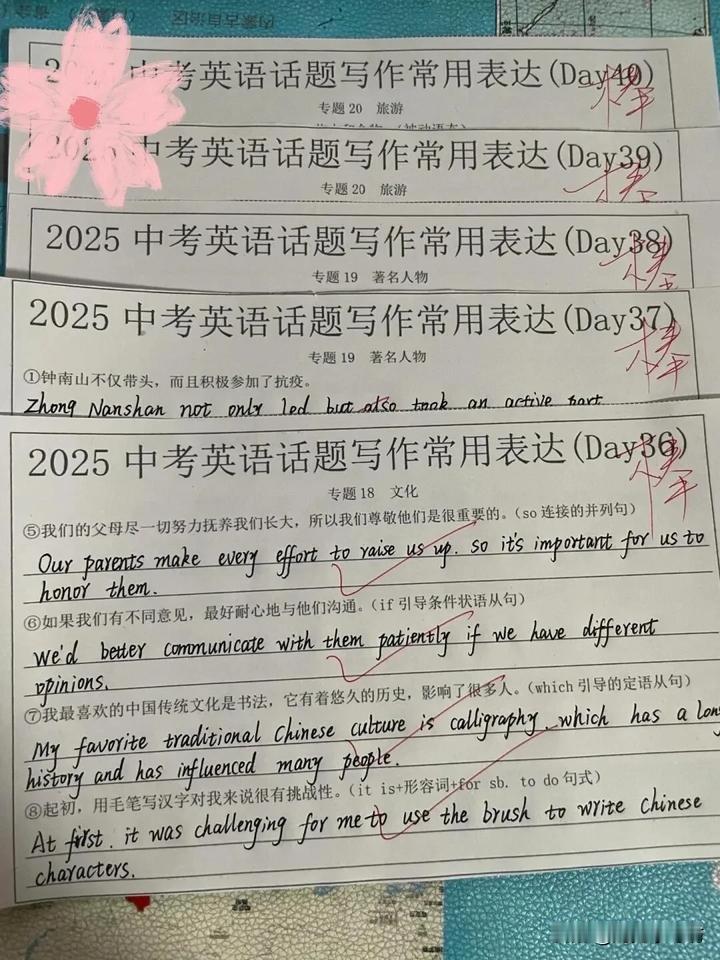 内蒙古自治区
2025 中考英语话题写作常用表达(Day40)
棒
专题 20 旅游
2025 中考英语话题写作常用表达(Day39)
棒
专题 20 旅游
2025 中考英语话题写作常用表达(Day38)
棒
专题 19 著名人物
2025 中考英语话题写作常用表达(Day37)
棒
专题 19 著名人物
①钟南山不仅带头，而且积极参加了抗疫。
Zhong Nanshan not only led but also took an active part
2025 中考英语话题写作常用表达(Day36)
棒
专题 18 文化
⑤我们的父母尽一切努力抚养我们长大，所以我们尊敬他们是很重要的。（so 连接的并列句）
Our parents make every effort to raise us up. so it's important for us to
honor them.
⑥如果我们有不同意见，最好耐心地与他们沟通。（if 引导条件状语从句）
We'd better communicate with them patiently if we have different
opinions.
⑦我最喜欢的中国传统文化是书法，它有着悠久的历史，影响了很多人。（which 引导的定语从句）
My favorite traditional Chinese culture is calligraphy, which has a long
history and has influenced many people.
⑧起初，用毛笔写汉字对我来说很有挑战性。（it is+形容词+for sb. to do 句式）
At first, it was challenging for me to use the brush to write Chinese
characters.